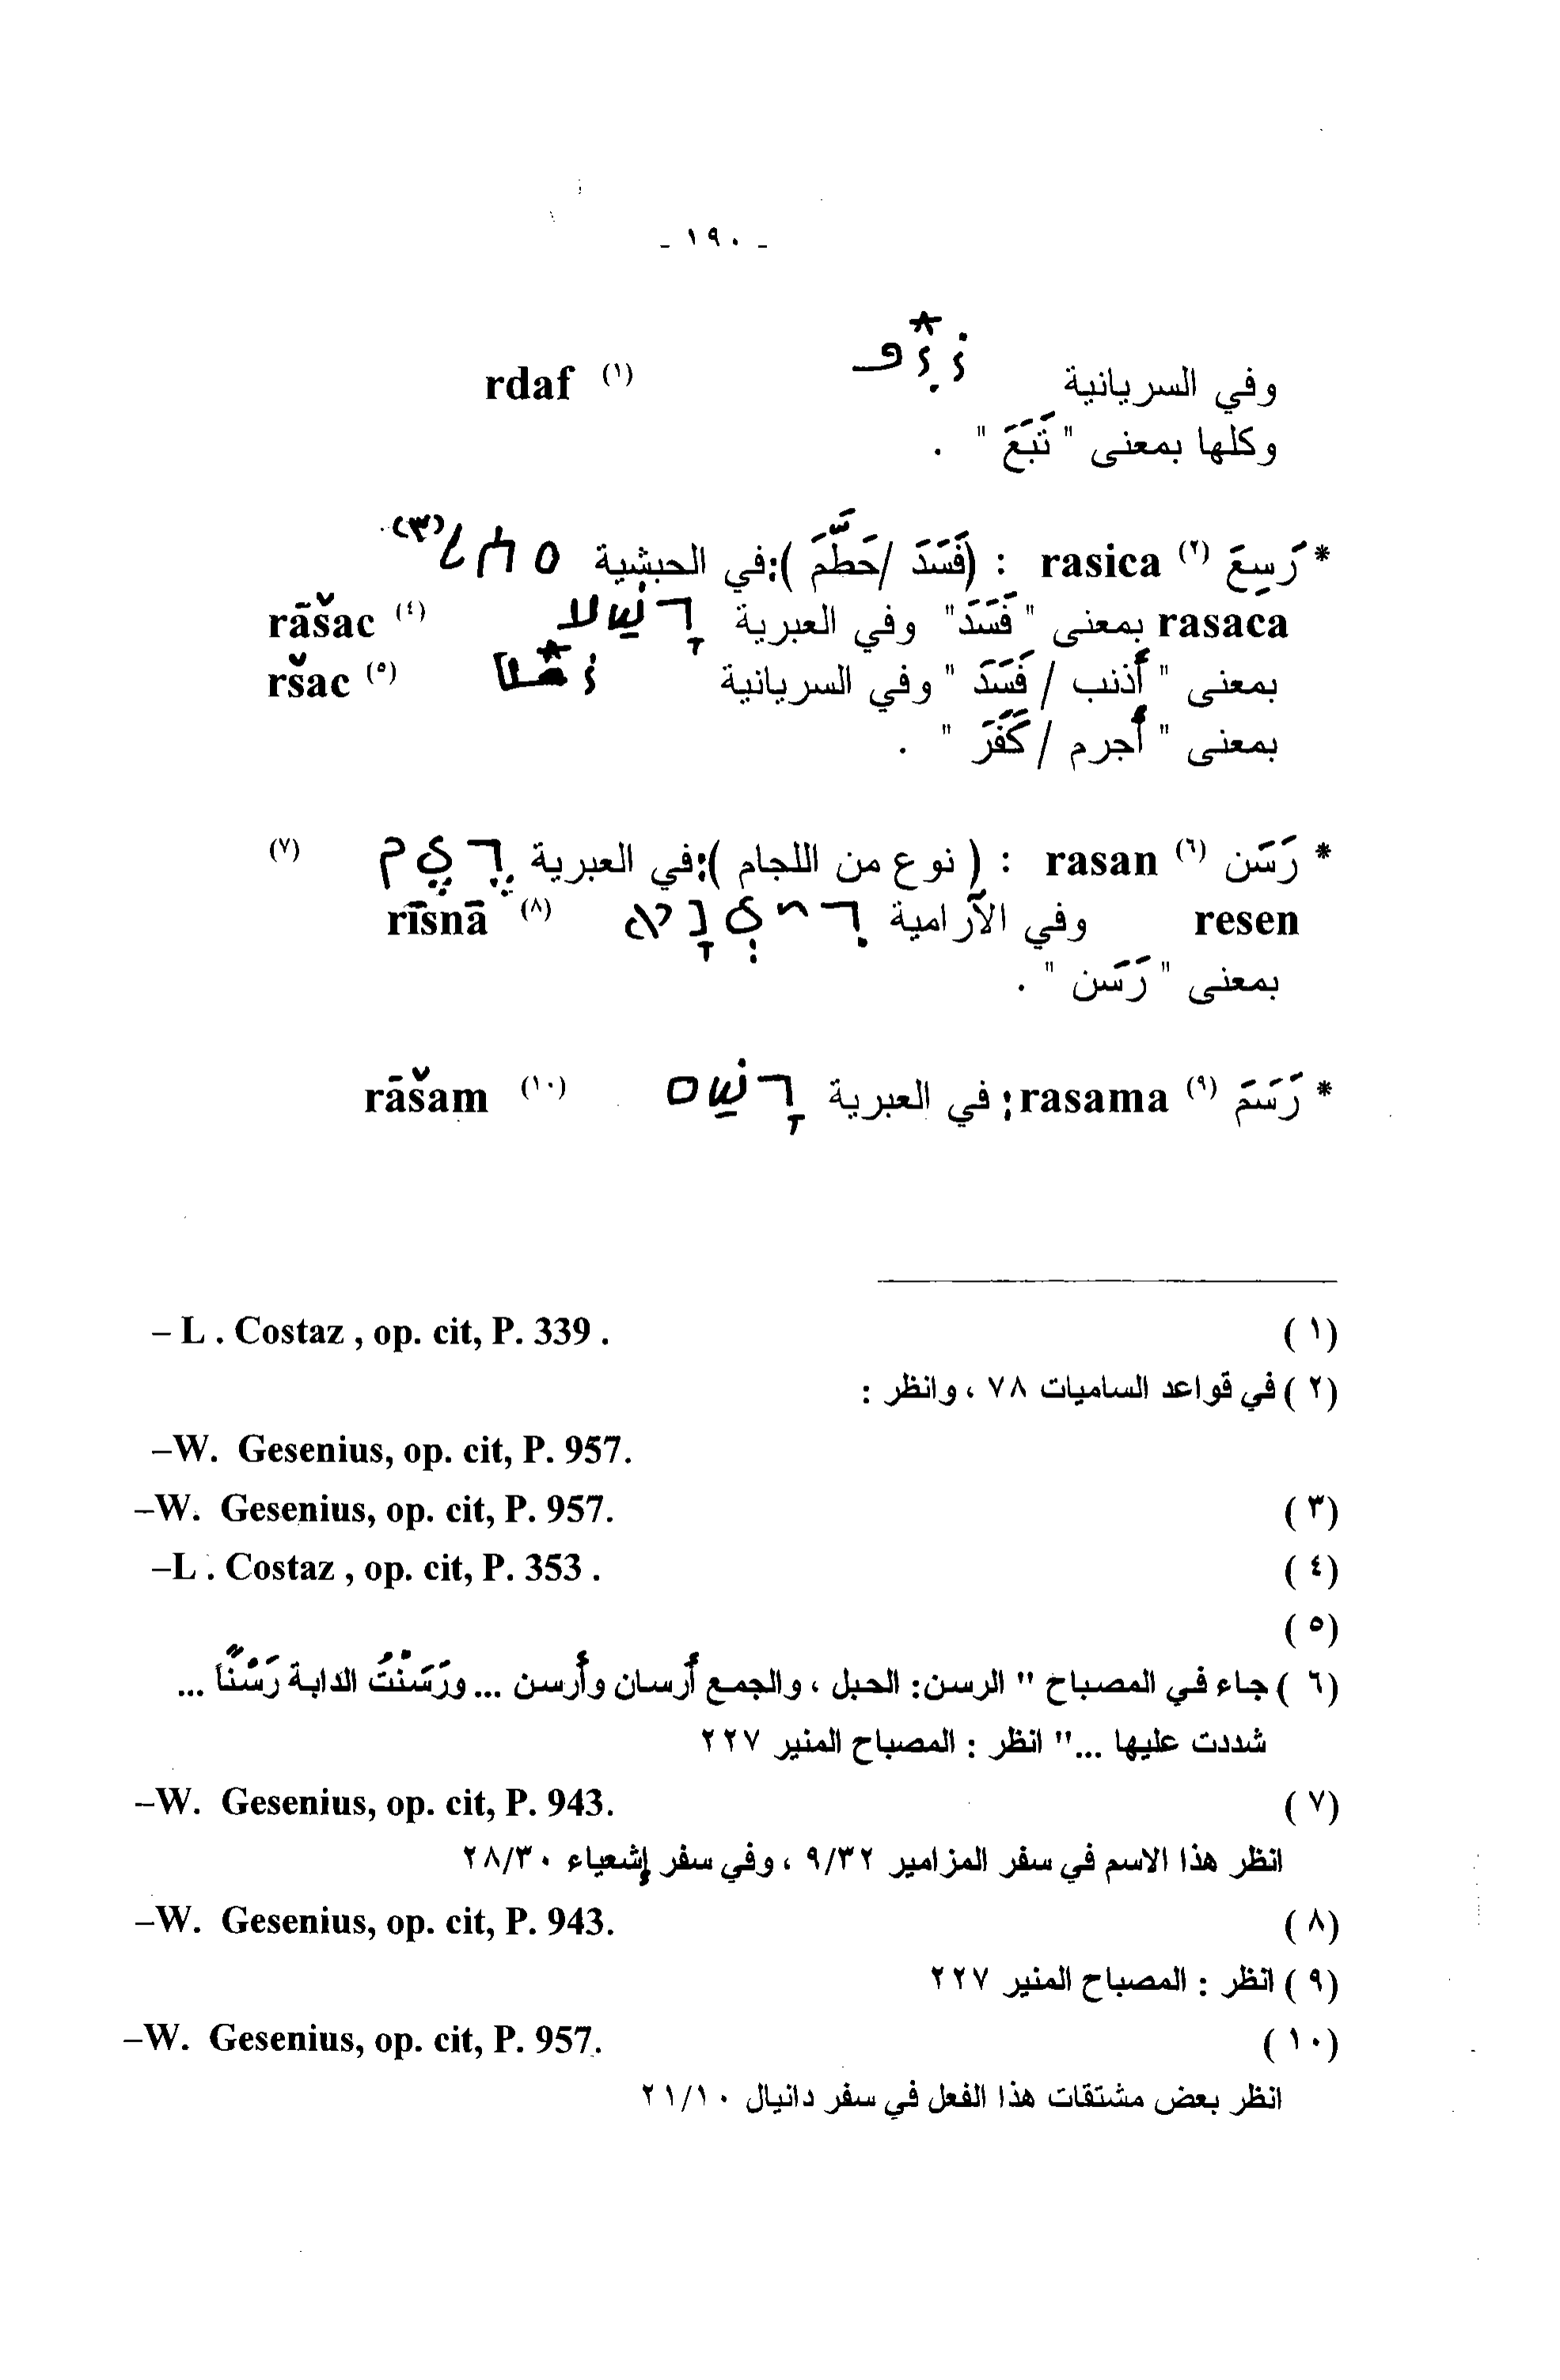 - ١٩٠ -
وفي السريانية ܪܕܦ rdaf (١)
وكلها بمعنى " تَبَعَ " .
* رَسِعَ (٢) rasica : (فَسَدَ /حَطَّمَ ):في الحبشية (٣)
rasaca بمعنى " فَسَدَ" وفي العبرية רָשַׁע rāšac (٤)
بمعنى " أذنب / فَسَدَ " وفي السريانية ܪܫܥ ršac (٥)
بمعنى " أجرم / كَفَرَ " .
* رَسَن (٦) rasan : ( نوع من اللجام ):في العبرية רֶסֶן (٧)
resen وفي الآرامية רִיסְנָא rīsnā (٨)
بمعنى " رَسَن " .
* رَسَمَ (٩) rasama: في العبرية רָשַׁם rāšam (١٠)
(١) – L . Costaz , op. cit, P. 339 .
(٢) في قواعد الساميات ٧٨ ، وانظر :
–W. Gesenius, op. cit, P. 957.
(٣) –W. Gesenius, op. cit, P. 957.
(٤) –L . Costaz , op. cit, P. 353 .
(٥)
(٦) جاء في المصباح " الرسن: الحبل ، والجمع أرسان وأرسن ... ورَسَنْتُ الدابة رَسْنًا ...
شددت عليها ..." انظر : المصباح المنير ٢٢٧
(٧) –W. Gesenius, op. cit, P. 943.
انظر هذا الاسم في سفر المزامير ٩/٣٢ ، وفي سفر إشعياء ٢٨/٣٠
(٨) –W. Gesenius, op. cit, P. 943.
(٩) انظر : المصباح المنير ٢٢٧
(١٠) –W. Gesenius, op. cit, P. 957.
انظر بعض مشتقات هذا الفعل في سفر دانيال ٢١/١٠